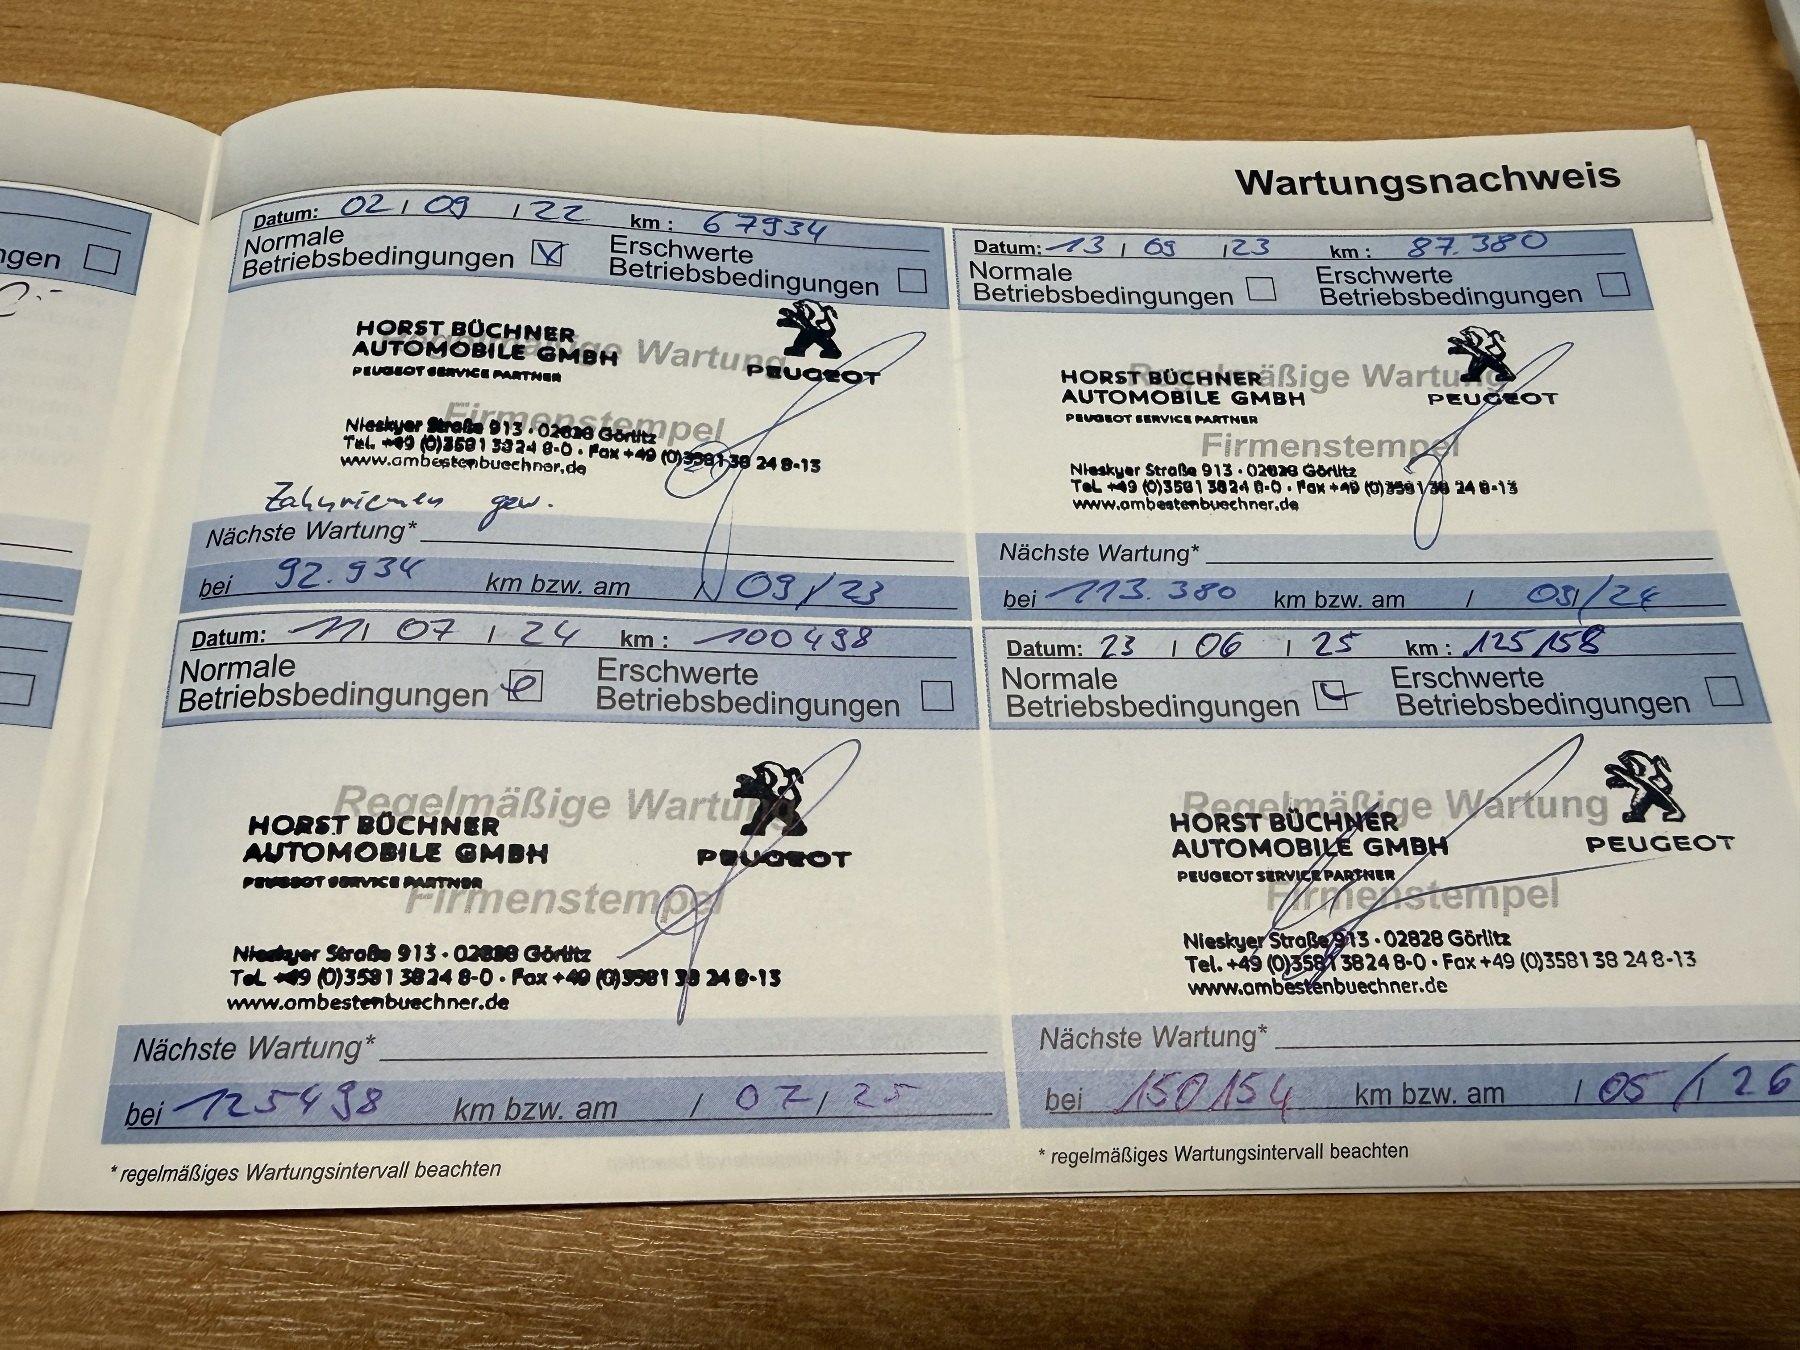 Wartungsnachweis
ngen
Datum: 02 / 09 / 22 km : 67934
Normale
Betriebsbedingungen
Erschwerte
Betriebsbedingungen
HORST BÜCHNER
AUTOMOBILE GMBH
PEUGEOT SERVICE PARTNER
PEUGEOT
Regelmäßige Wartung
Firmenstempel
Nieskyer Straße 913 · 02828 Görlitz
Tel. +49 (0)3581 38 24 8-0 · Fax +49 (0)3581 38 24 8-13
www.ambestenbuechner.de
Zahnriemen gew.
Nächste Wartung*
bei 92.934 km bzw. am / 09 / 23
Datum: 13 / 09 / 23 km : 87.380
Normale
Betriebsbedingungen
Erschwerte
Betriebsbedingungen
HORST BÜCHNER
AUTOMOBILE GMBH
PEUGEOT SERVICE PARTNER
PEUGEOT
Regelmäßige Wartung
Firmenstempel
Nieskyer Straße 913 · 02828 Görlitz
Tel. +49 (0)3581 38 24 8-0 · Fax +49 (0)3581 38 24 8-13
www.ambestenbuechner.de
Nächste Wartung*
bei 113.380 km bzw. am / 09 / 24
Datum: 11 / 07 / 24 km : 100498
Normale
Betriebsbedingungen
Erschwerte
Betriebsbedingungen
Regelmäßige Wartung
HORST BÜCHNER
AUTOMOBILE GMBH
PEUGEOT SERVICE PARTNER
PEUGEOT
Firmenstempel
Nieskyer Straße 913 · 02828 Görlitz
Tel. +49 (0)3581 38 24 8-0 · Fax +49 (0)3581 38 24 8-13
www.ambestenbuechner.de
Nächste Wartung*
bei 125498 km bzw. am / 07 / 25
* regelmäßiges Wartungsintervall beachten
Datum: 23 / 06 / 25 km : 125158
Normale
Betriebsbedingungen
Erschwerte
Betriebsbedingungen
Regelmäßige Wartung
HORST BÜCHNER
AUTOMOBILE GMBH
PEUGEOT SERVICE PARTNER
PEUGEOT
Firmenstempel
Nieskyer Straße 913 · 02828 Görlitz
Tel. +49 (0)3581 38 24 8-0 · Fax +49 (0)3581 38 24 8-13
www.ambestenbuechner.de
Nächste Wartung*
bei 150154 km bzw. am / 05 / 26
* regelmäßiges Wartungsintervall beachten